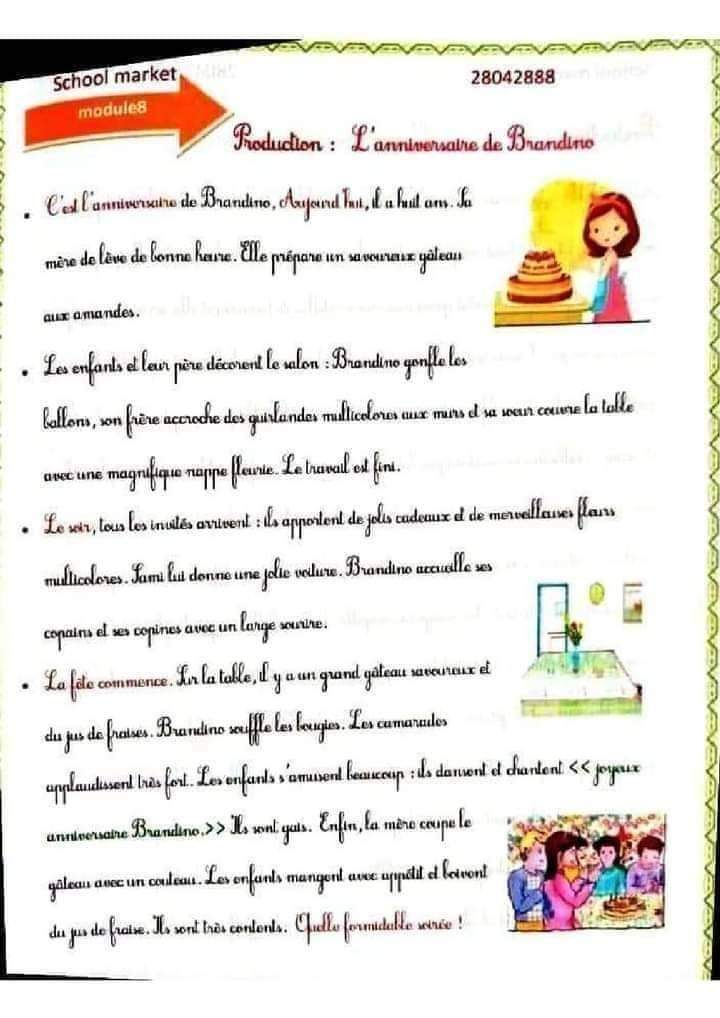 School market
28042888
module8
Production : L'anniversaire de Brandino
C'est l'anniversaire de Brandino, Aujourd'hui, il a huit ans. Sa
mère de lève de bonne heure. Elle prépare un savoureux gâteau
aux amandes.
Les enfants et leur père décorent le salon : Brandino gonfle les
ballons, son frère accroche des guirlandes multicolores aux murs et sa sœur couvre la table
avec une magnifique nappe fleurie. Le travail est fini.
Le soir, tous les invités arrivent : ils apportent de jolis cadeaux et de merveilleuses fleurs
multicolores. Sami lui donne une jolie voiture. Brandino accueille ses
copains et ses copines avec un large sourire.
La fête commence. Sur la table, il y a un grand gâteau savoureux et
du jus de fraises. Brandino souffle les bougies. Les camarades
applaudissent très fort. Les enfants s'amusent beaucoup : ils dansent et chantent << joyeux
anniversaire Brandino.>> Ils sont gais. Enfin, la mère coupe le
gâteau avec un couteau. Les enfants mangent avec appétit et boivent
du jus de fraise. Ils sont très contents. Quelle formidable soirée !